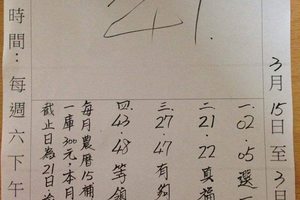 3月15日至3月
41.
一.02.05選一
二.21.22真福
三.27 47 有夠
四.43.48 等領
每月農曆15補
一庫300元.本月
截止日為21日.
時間：每週六下午